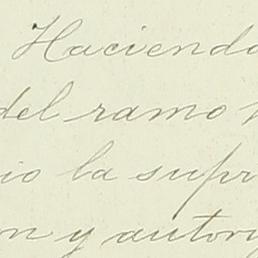 Haciendo
del ramo
io la supr
n y autory